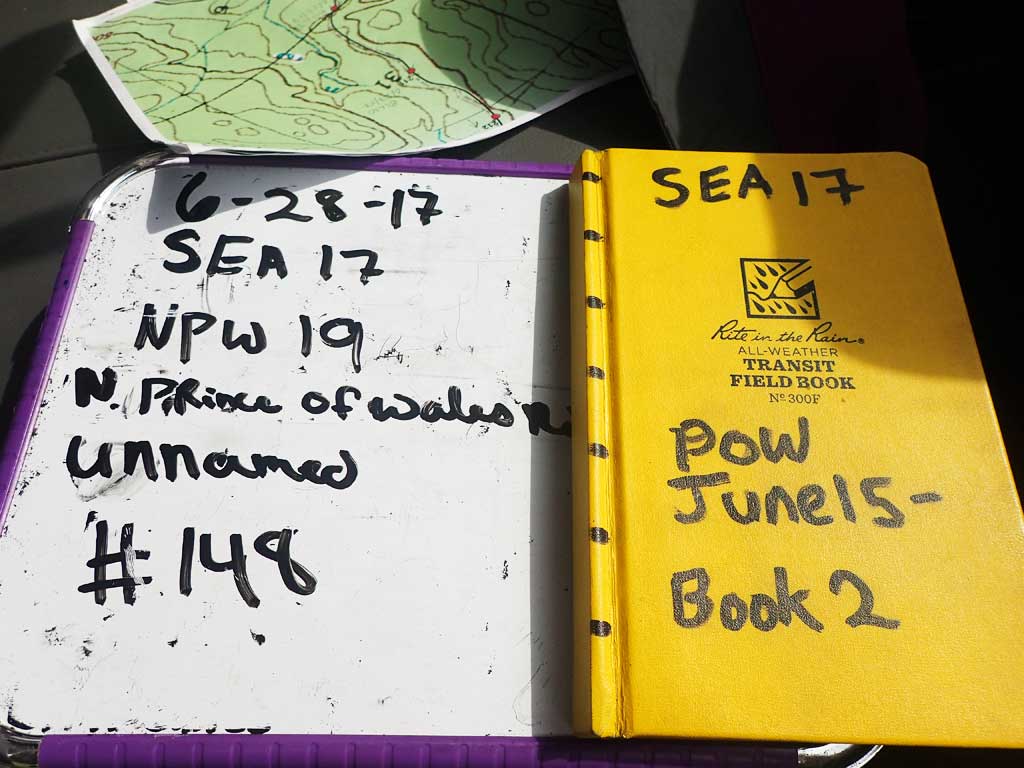 6-28-17
SEA 17
NPW 19
N. Prince of Wales
Unnamed
#148
SEA 17
Rite in the Rain®
ALL-WEATHER
TRANSIT
FIELD BOOK
Nº 300F
POW
June 15-
Book 2